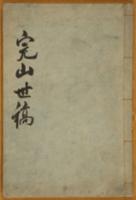 完山世稿